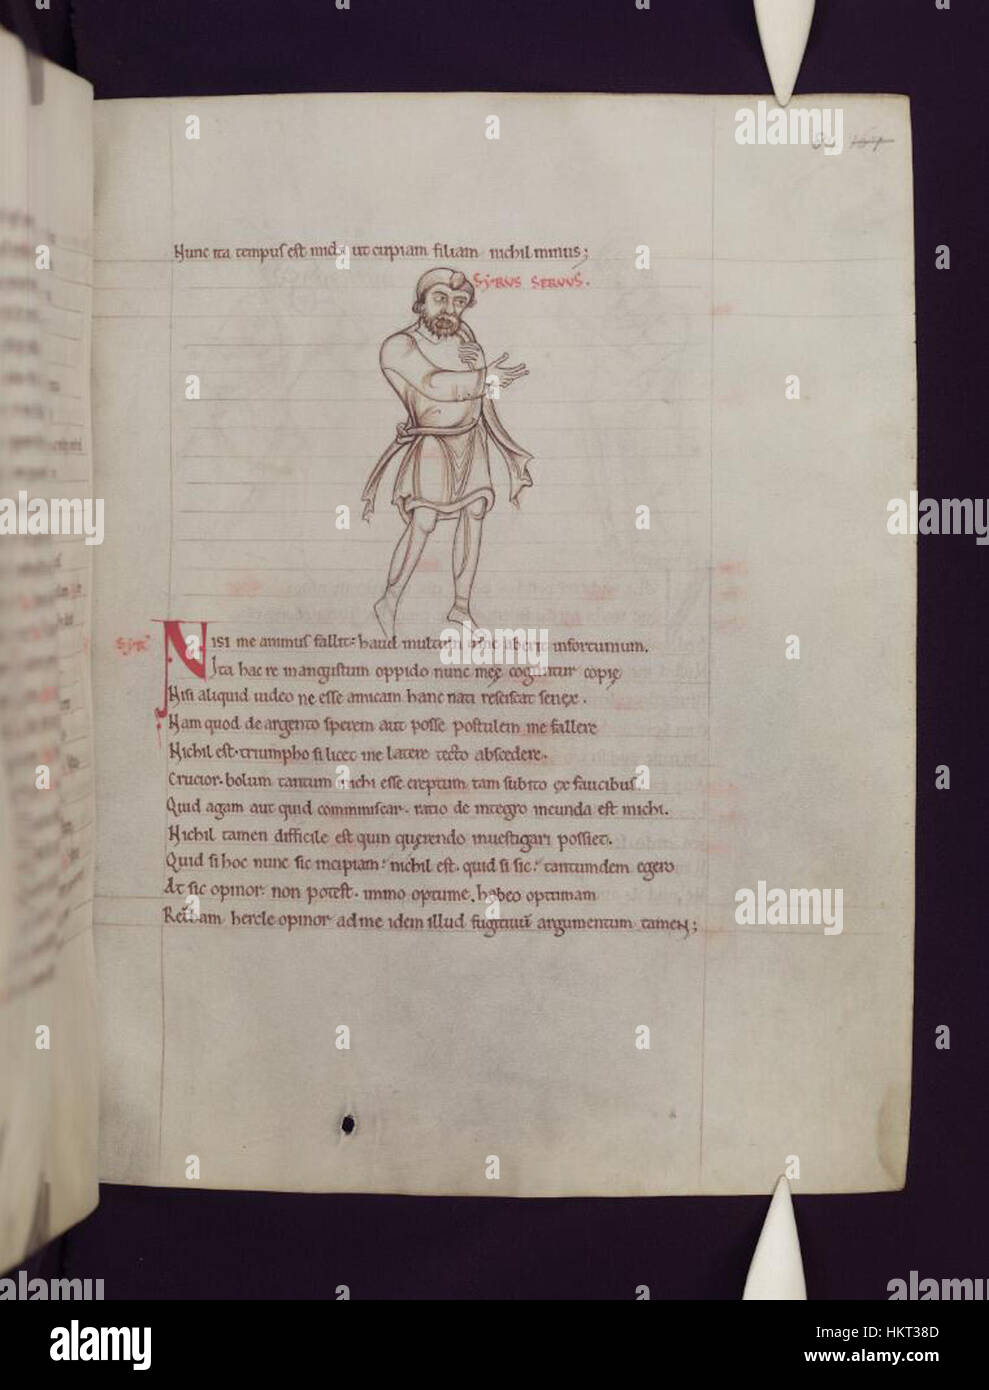 Nunc ita tempus est mich ut cupiam filiam nichil minus;
Syrus servus.
Syrꝰ
Nisi me animus fallit: haud multum liberit infortunium.
Ita hac re in angustum oppido nunc meę coguntur copię
Nisi aliquid uideo ne esse amicam hanc nati resciscat senex.
Nam quod de argento sperem aut posse postulem me fallere
Nichil est. triumpho si licet me latere tecto abscedere.
Crucior. bolum tantum michi esse ereptum tam subito ex faucibus.
Quid agam aut quid comminiscar. ratio de integro ineunda est michi.
Nichil tamen difficile est quin querendo inuestigari possiet.
Quid si hoc nunc sic incipiam: nichil est. quid si sic: tantumdem egero
At sic opinor. non potest. immo optume. habeo optumam
Retrham hercle opinor ad me idem illud fugitiuū argumentum tamen;
alamy
Image ID: HKT38D
www.alamy.com